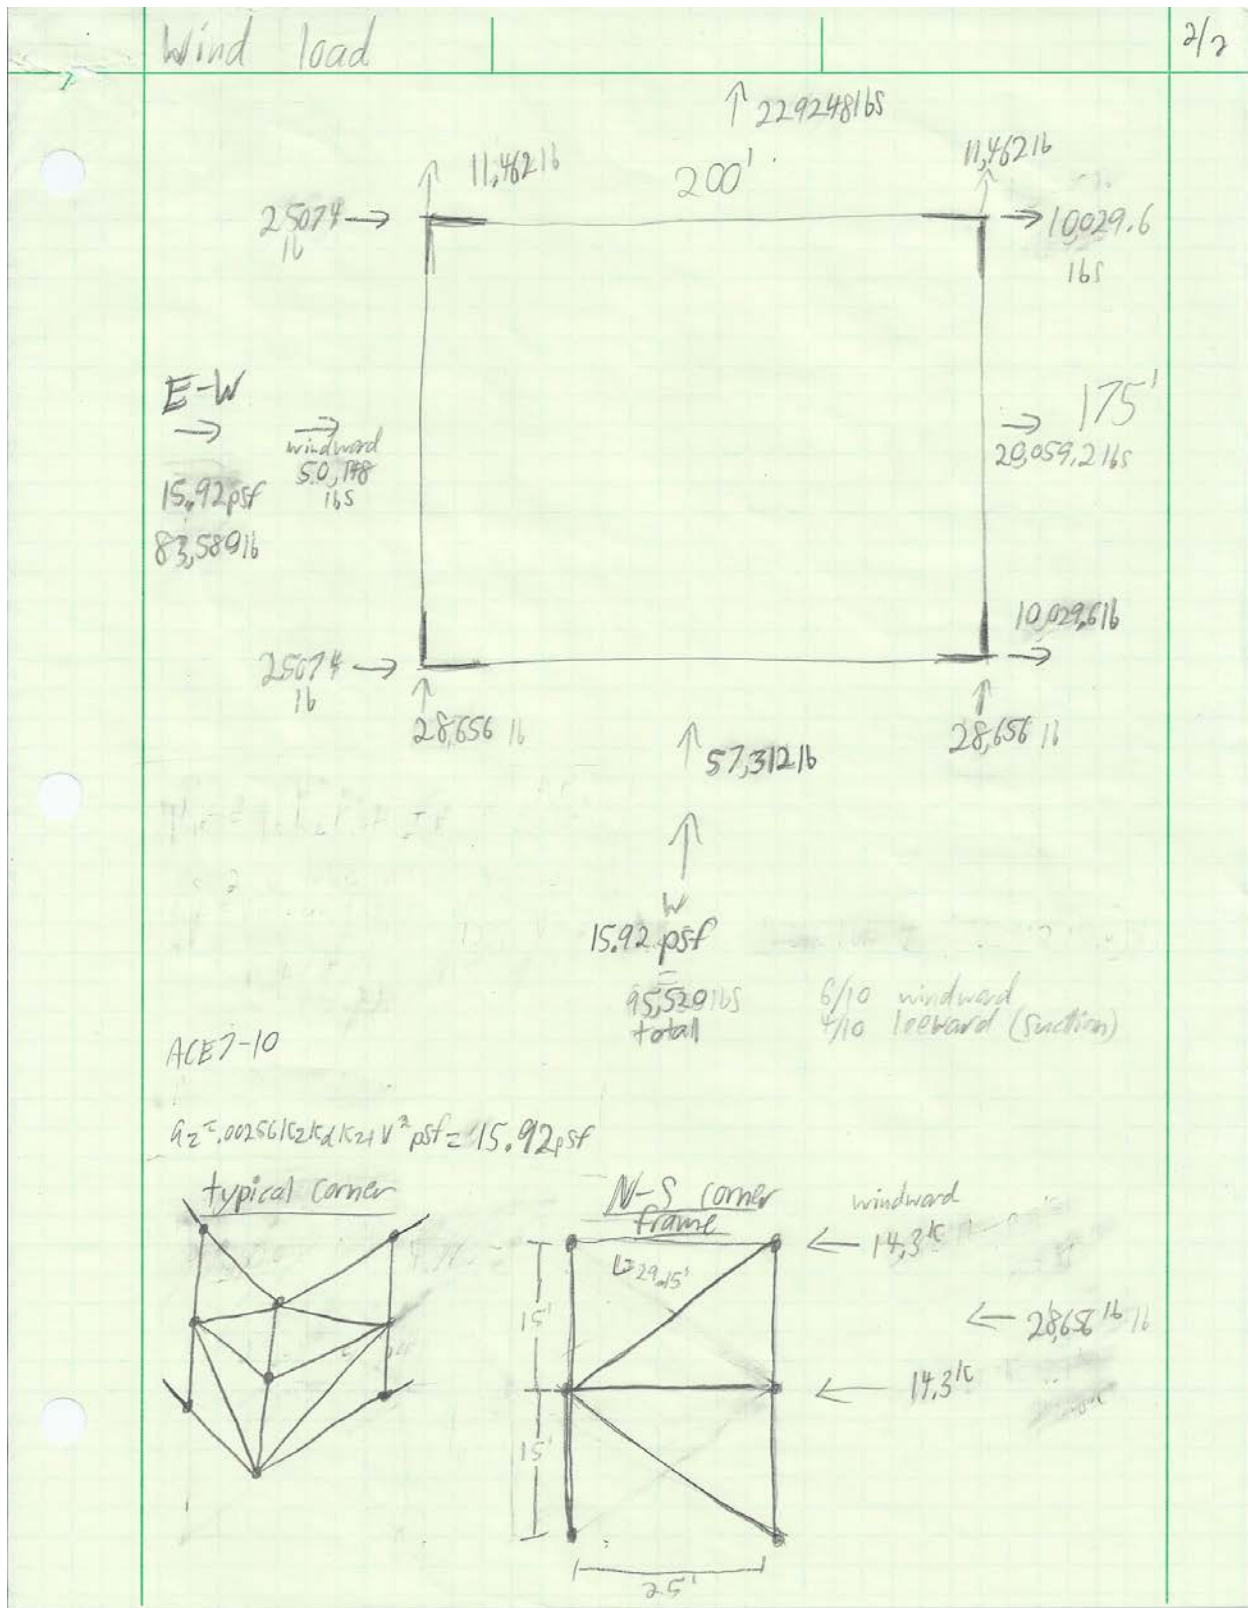 Wind load
2/2
↑ 22924816s
11,462 lb
200'
11,462 lb
25074 →
lb
→ 10,029.6
lbs
E-W
→
→
windward
50,148
lbs
15.92psf
83,580lb
175'
→
20,059.2 lbs
10,029.6lb
25074 →
lb
28,656 lb
28,656 lb
↑ 57,312lb
W
15.92 psf
=
95,520lbs
total
6/10 windward
4/10 leeward (suction)
ACE7-10
qz=.00256KzKdKztV² psf= 15.92psf
typical corner
N-S corner
frame
windward
← 14.3ᵏ
L=29.15'
15'
← 28,656 lb lb
← 14.3ᵏ
15'
25'